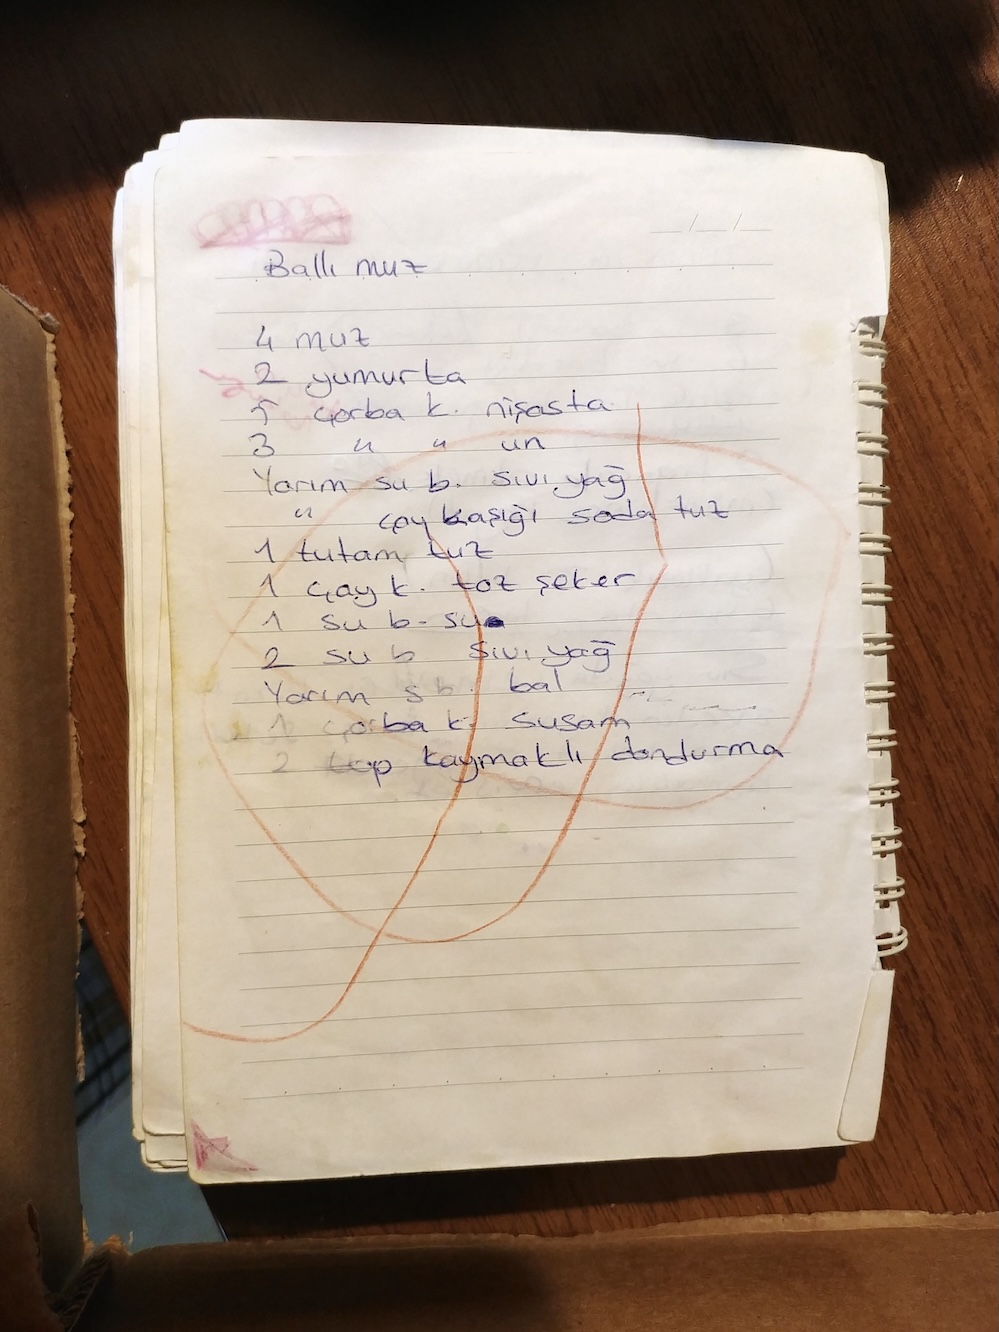 Ballı muz
4 muz
2 yumurta
5 çorba k. nişasta
3 " " un
Yarım su b. sıvı yağ
" çay kaşığı soda tuz
1 tutam tuz
1 çay k. toz şeker
1 su b. su
2 su b sıvı yağ
Yarım s b. bal
1 çorba k. susam
2 top kaymaklı dondurma